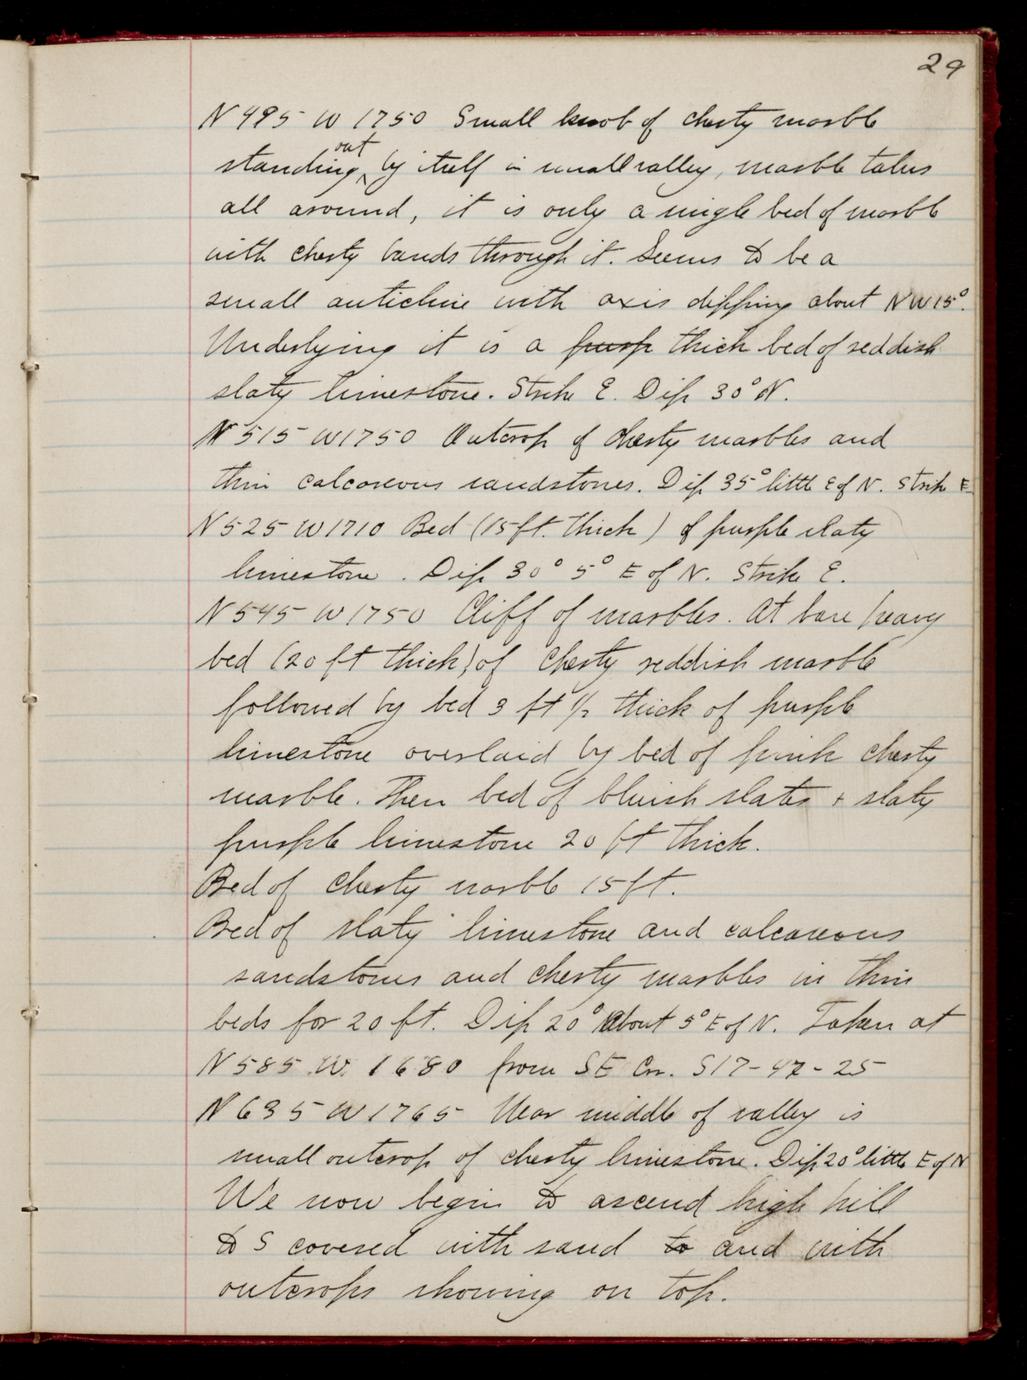 29
N 495 W 1750 Small knob of cherty marble
standing out by itself in small valley, marble talus
all around, it is only a single bed of marble
with cherty bands through it. Seems to be a
small anticline with axis dipping about NW 15°.
Underlying it is a purp thick bed of reddish
slaty limestone. Strike E. Dip 30° N.
N 515 W 1750 Outcrop of cherty marbles and
thin calcareous sandstones. Dip 35° little E of N. Strike E.
N 525 W 1710 Bed (15 ft. thick) of purple slaty
limestone. Dip 30° 5° E of N. Strike E.
N 545 W 1750 Cliff of marbles. At base heavy
bed (20 ft thick) of cherty reddish marble
followed by bed 3 ft 1/2 thick of purple
limestone overlaid by bed of pink cherty
marble. Then bed of bluish slates + slaty
purple limestone 20 ft thick.
Bed of cherty marble 15 ft.
Bed of slaty limestone and calcareous
sandstones and cherty marbles in thin
beds for 20 ft. Dip 20° about 5° E of N. Taken at
N 585 W. 1680 from SE Cor. S17-47-25
N 635 W 1765 Near middle of valley is
small outcrop of cherty limestone. Dip 20° little E of N
We now begin to ascend high hill
to S covered with sand to and with
outcrops showing on top.